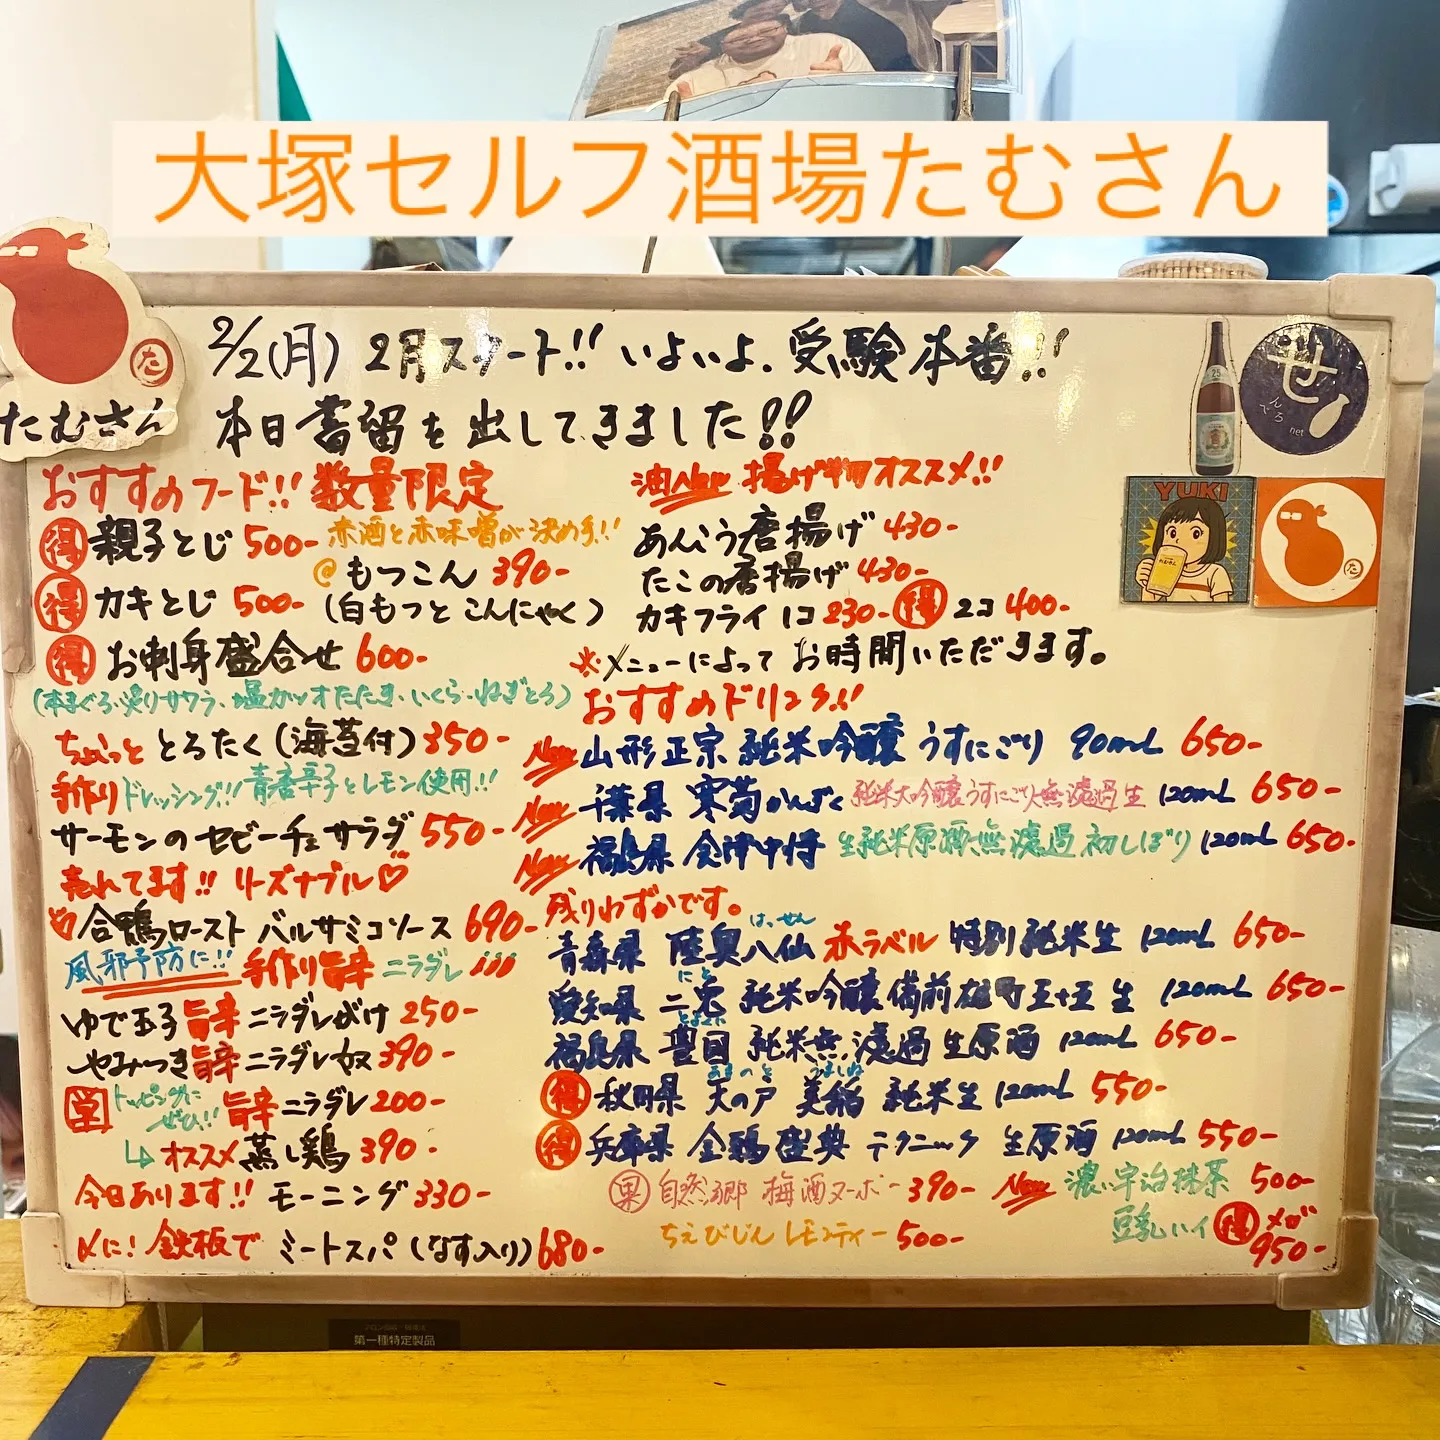 大塚セルフ酒場たむさん
た
たむさん
2/2(月) 2月スタート!! いよいよ、受験本番!!
本日書留を出してきました!!
せ
んべろ
net
YUKI
おすすめフード!! 数量限定
得 親子とじ 500-
赤酒と赤味噌が決め手!!
@もつこん 390-
(白もつとこんにゃく)
得 カキとじ 500-
得 お刺身盛合せ 600-
(本まぐろ・炙りサワラ・塩カツオたたき・いくら・ねぎとろ)
ちょこっと とろたく(海苔付) 350-
手作りドレッシング!! 青唐辛子とレモン使用!!
サーモンのセビーチェサラダ 550-
売れてます!! リーズナブル♡
合鴨ロースト バルサミコソース 690-
風邪予防に!! 手作り旨辛 ニラダレ
ゆで玉子旨辛ニラダレがけ 250-
やみつき旨辛ニラダレ奴 390-
トッピングにぜひ!! 旨辛ニラダレ 200-
↳オススメ蒸し鶏 390-
今日あります!! モーニング 330-
〆に! 鉄板で ミートスパ(なす入り) 680-
油New 揚げ物オススメ!!
あんこう唐揚げ 430-
たこの唐揚げ 430-
カキフライ 1コ 230- 得 2コ 400-
※メニューによってお時間いただきます。
おすすめドリンク!!
New 山形正宗 純米吟醸 うすにごり 90mL 650-
New 千葉県 寒菊 純米大吟醸うすにごり無濾過生 120mL 650-
New 福島県 会津中将 生純米原酒無濾過初しぼり 120mL 650-
残りわずかです。
青森県 陸奥八仙 赤ラベル 特別純米生 120mL 650-
はっせん
愛知県 二兎 純米吟醸備前雄町五十五 生 120mL 650-
にと
福島県 豊國 純米無濾過生原酒 120mL 650-
とよくに
得 秋田県 天の戸 美稲 純米生 120mL 550-
あまのと うましね
得 兵庫県 金鵄盛典 テクニック 生原酒 120mL 550-
果 自然郷 梅酒ヌーボー 390-
New 濃い宇治抹茶 500-
豆乳ハイ 得 メガ 950-
ちえびじん レモンティー 500-
第一種特定製品